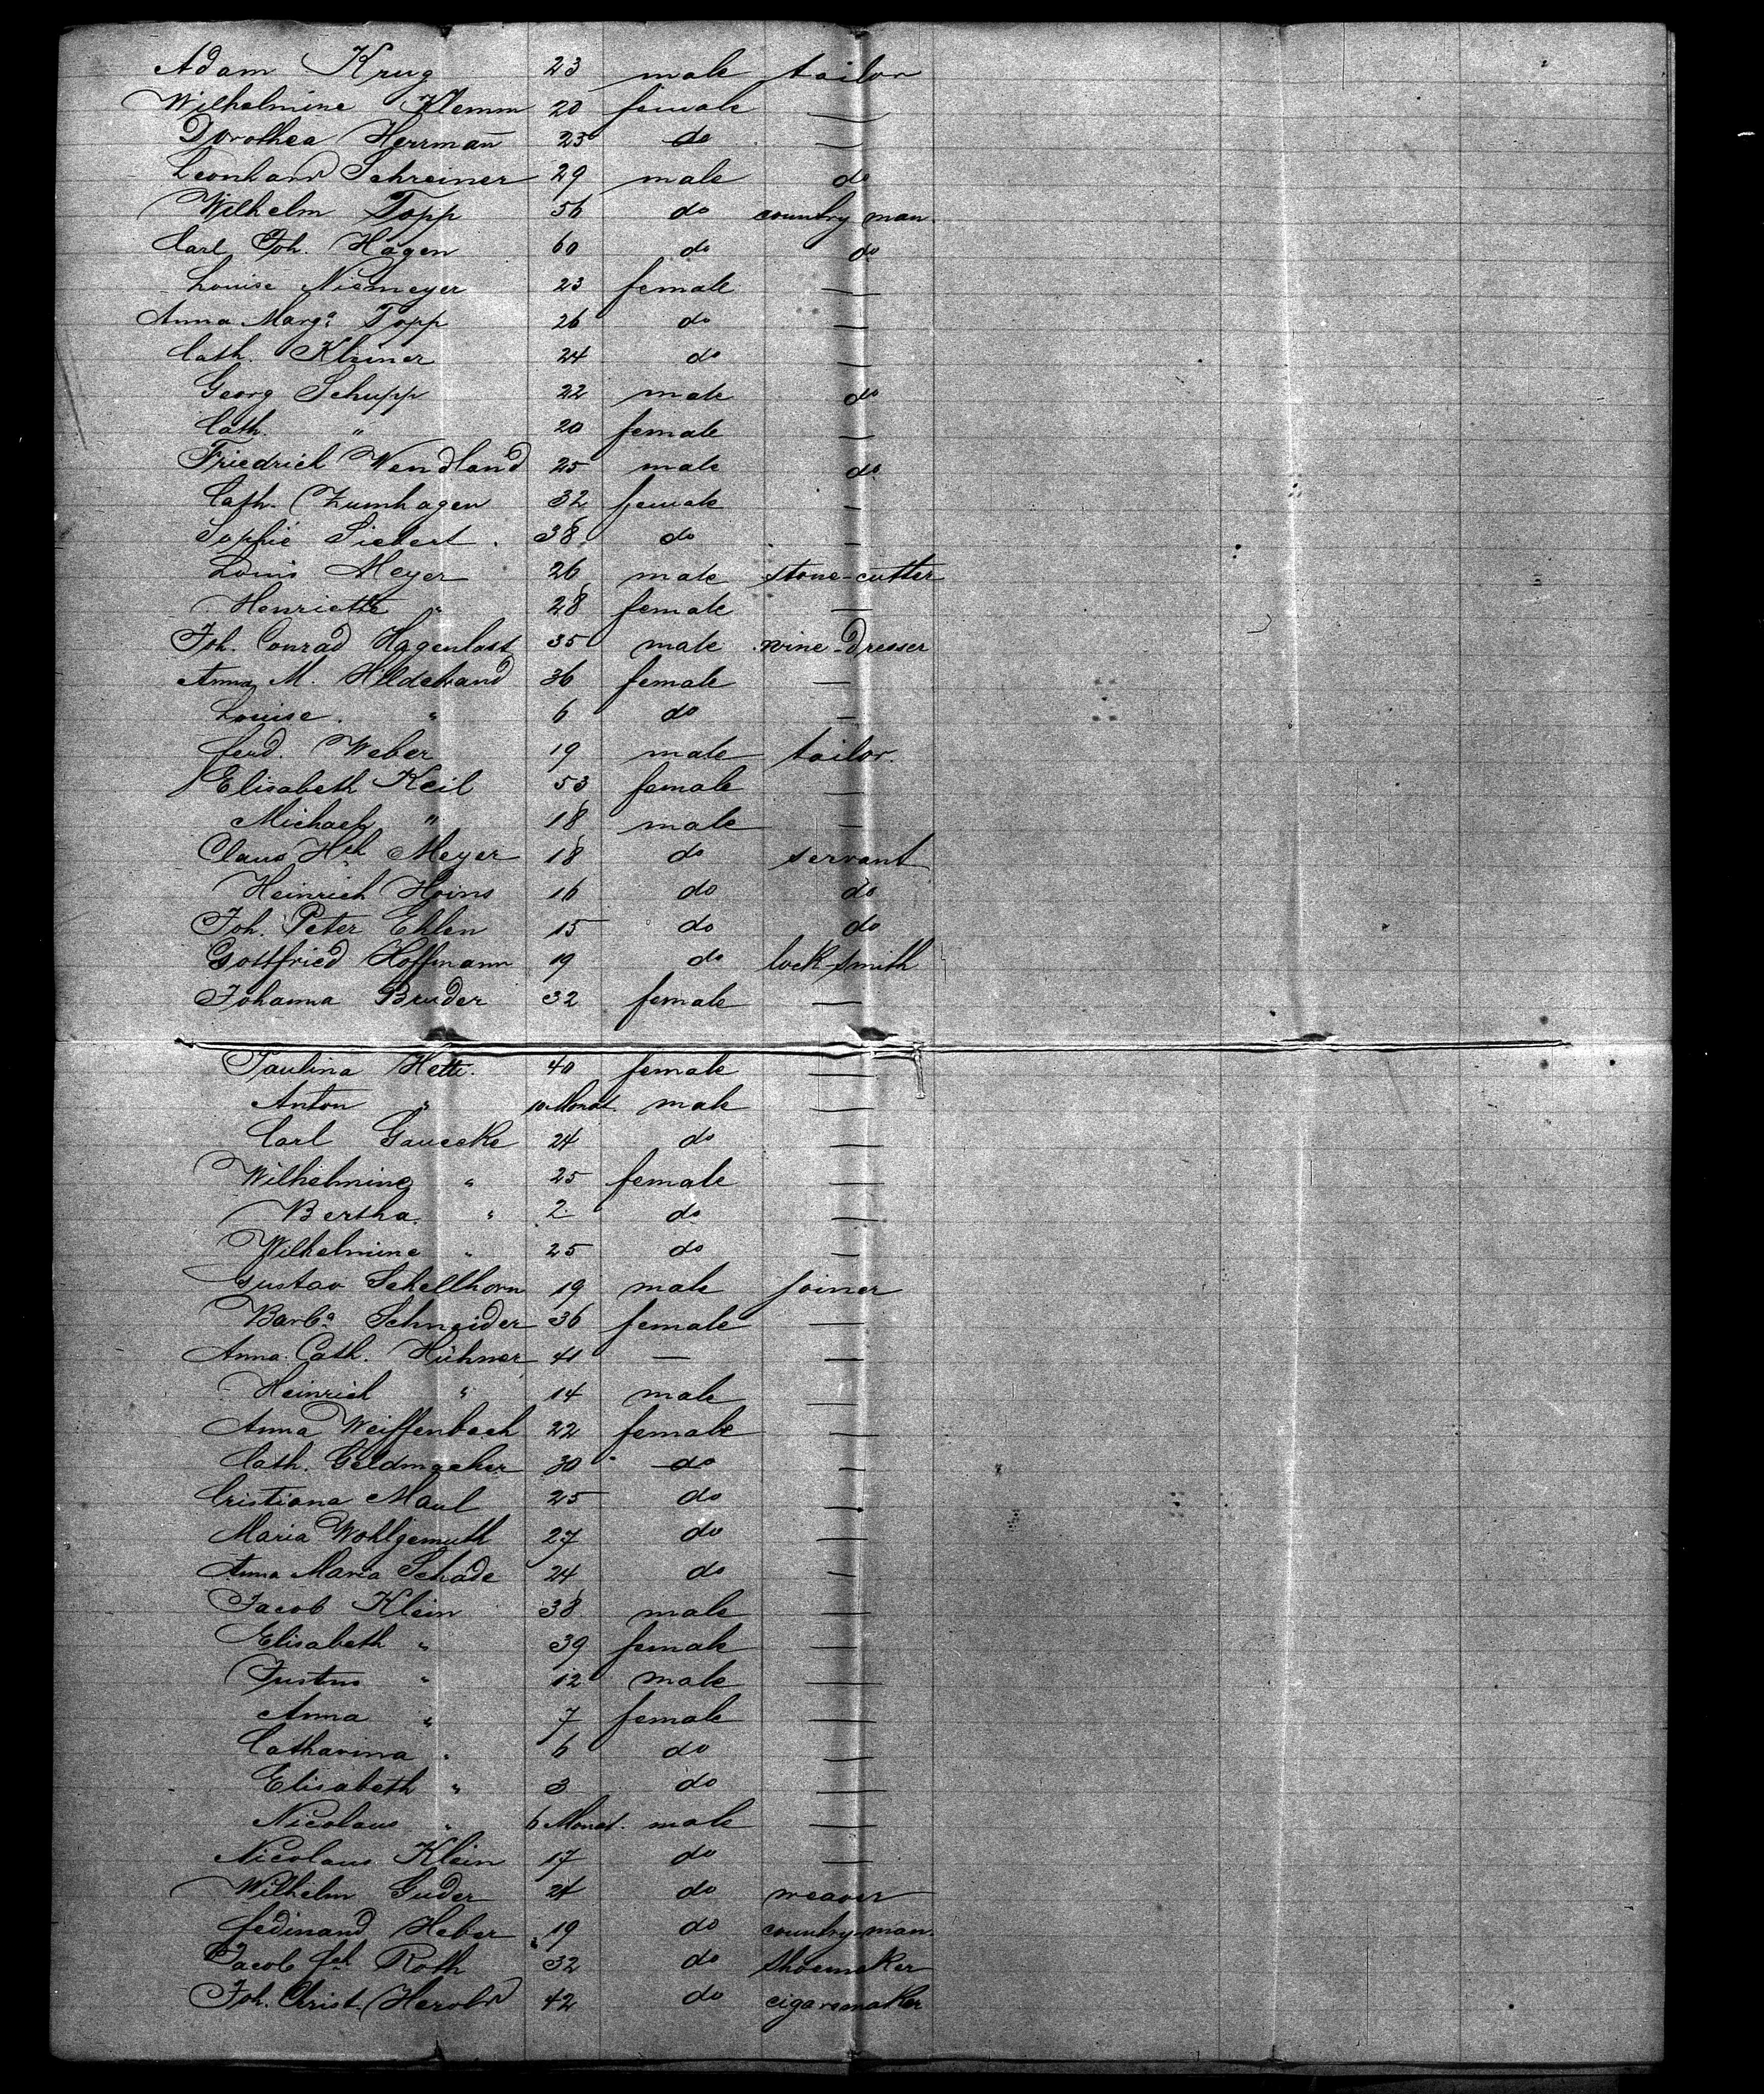 Adam Krug 23 male tailor
Wilhelmine Klemm 20 female —
Dorothea Herrman̅ 25 do —
Leonhard Schreiner 29 male do
Wilhelm Topp 56 do country man
Carl Joh. Hagen 60 do do
Louise Niemeyer 23 female —
Anna Marga. Topp 26 do —
Cath. Kleiner 24 do —
Georg Schupp 22 male do
Cath. " 20 female —
Friedrich Wendland 25 male do
Cath. Zumhagen 32 female —
Sophie Siebert. 38 do —
Louis Meyer 26 male stone-cutter
Henriette " 28 female —
Joh. Conrad 35 male wine-dresser
Anna M. Hildebrand 36 female —
Louise. " 6 do —
ferd. Weber 19 male tailor.
Elisabeth Keil 53 female —
Michael " 18 male —
Claus Hch Meyer 18 do servant
Heinrich Hoins 16 do do
Joh. Peter Ehlen 15 do do
Gottfried Hoffmann 19 do lock-smith
Johanna Bruder 32 female —
Paulina 40 female —
Anton " 10 Monat. male —
Carl 24 do —
Wilhelmine " 25 female —
Bertha. " 2 do —
Wilhelmine " 25 do —
Gustav Schellhorn 19 male joiner
Barba. Schneider 36 female —
Anna Cath. Hühner 41 — —
Heinrich " 14 male —
Anna Weiffenbach 22 female —
Cath. Geldmacher 30 do —
Cristiana Maul 25 do —
Maria Wohlgemuth 27 do —
Anna Maria Schade 24 do —
Jacob Klein 38 male —
Elisabeth " 39 female —
Justus " 12 male —
Anna " 7 female —
Catharina " 6 do —
Elisabeth " 3 do —
Nicolaus " 6 Monat. male —
Nicolaus Klein 17 do —
Wilhelm Guder 24 do weaver
fedinand Heber 19 do country-man.
Jacob Roth 32 do shoemaker
Joh. Christ. Herold 42 do cigarsmaker